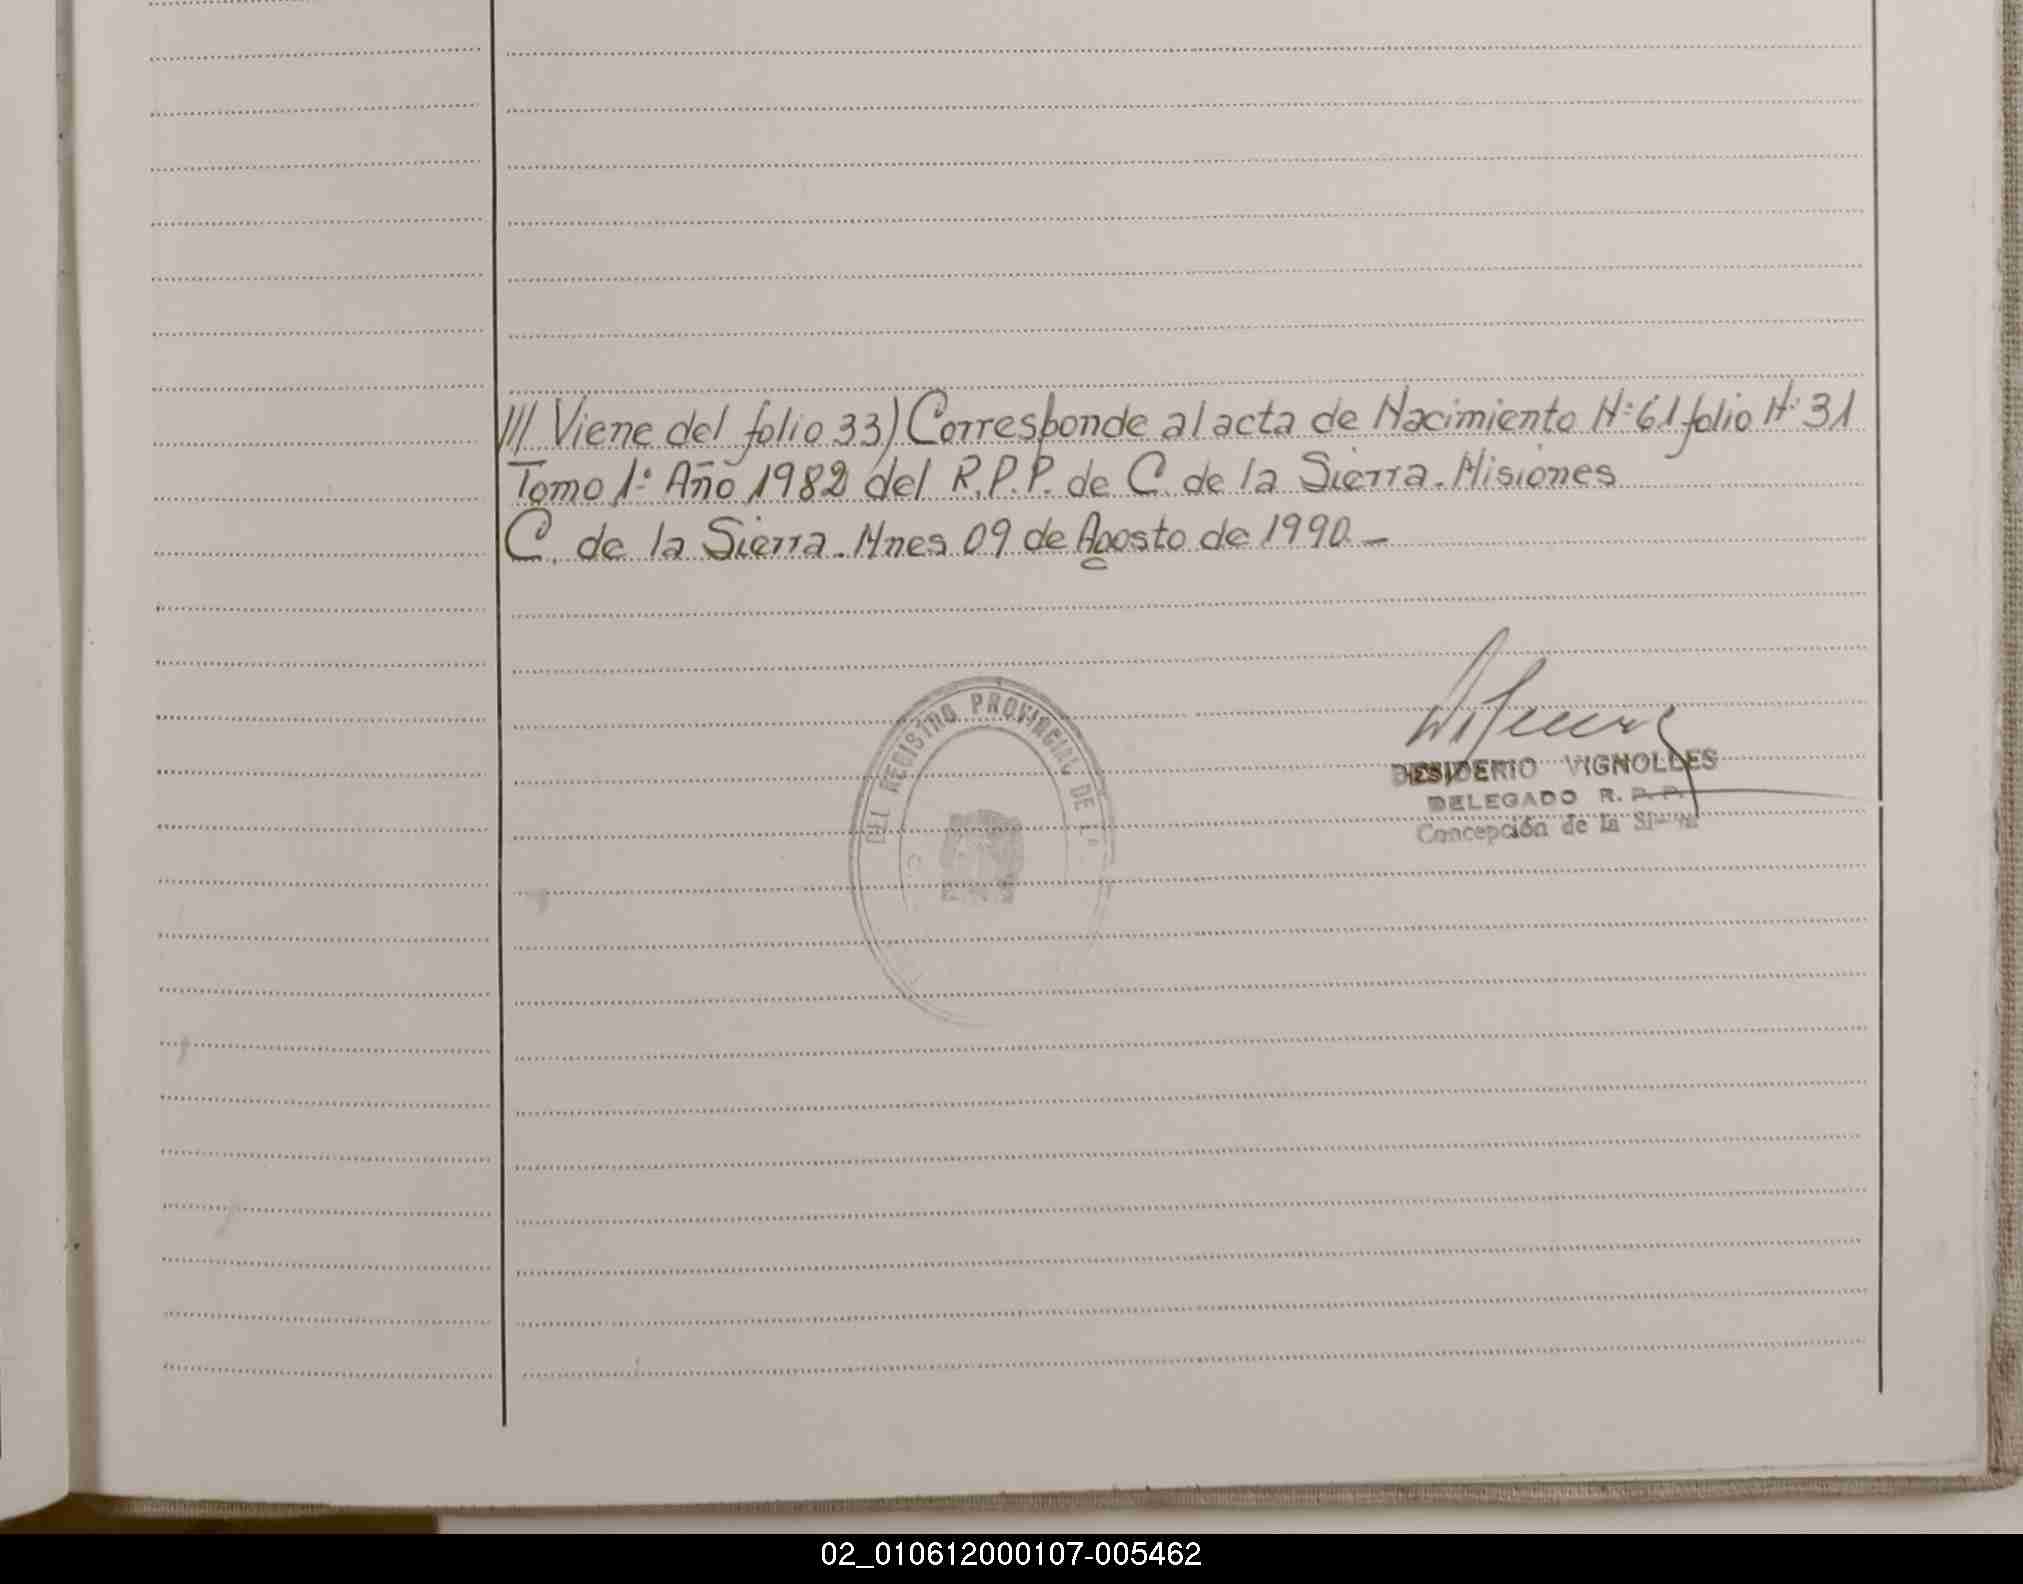 /// Viene del folio 33) Corresponde al acta de Nacimiento N° 61 folio N° 31
Tomo 1° Año 1982 del R.P.P. de C. de la Sierra. Misiones
C. de la Sierra. Mnes 09 de Agosto de 1990. —
DEL REGISTRO PROVINCIAL DE L
DESIDERIO VIGNOLLES
DELEGADO R. P. P.
Concepción de la Sierra
02_010612000107-005462